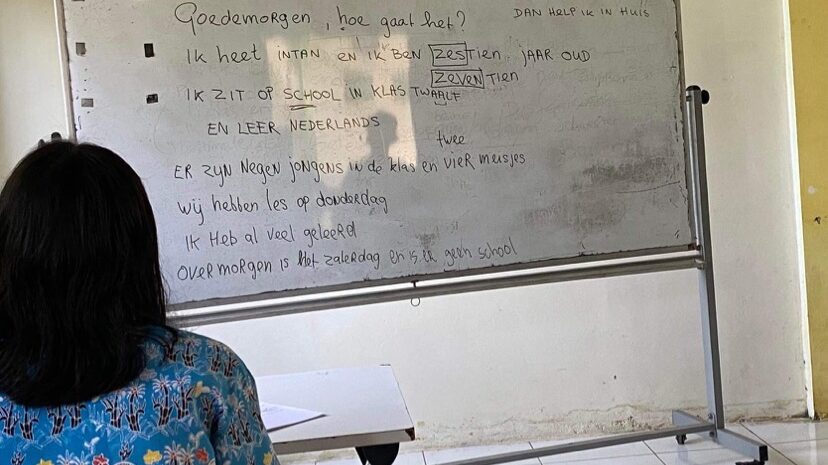 Goedemorgen, hoe gaat het?
DAN HELP IK IN HUIS
IK heet INTAN en IK BEN ZESTIEN JAAR OUD
ZEVEN TIEN
IK ZIT OP SCHOOL IN KLAS TWAALF
EN LEER NEDERLANDS
twee
ER ZYN NEGEN JONGENS IN de klas en VIER MEISJES
wij hebben les op donderdag
IK HEB al veel geleerd
OVERMORGEN IS HET ZATERDAG en is er geen school